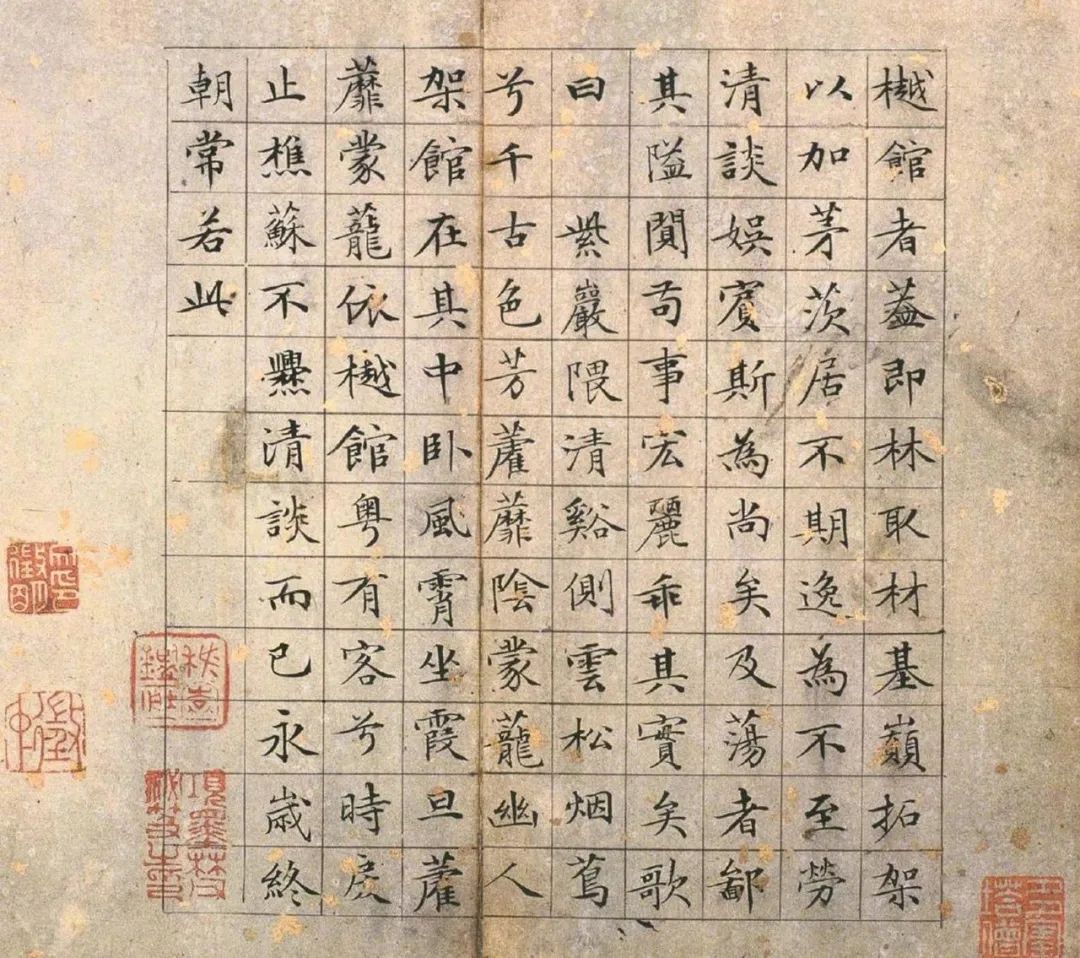 樾館者蓋即林取材基巔拓架
以加茅茨居不期逸為不至勞
清談娛賓斯為尚矣及蕩者鄙
其隘閴苟事宏麗乖其實矣歌
曰 紫巖隈清谿側雲松烟蔦
兮千古色芳藿蘼陰蒙蘢幽人
架館在其中卧風霄坐霞旦藿
蘼蒙蘢依樾館粵有客兮時戾
止樵蘇不爨清談而已永歲終
朝常若此
項墨林父
祕笈之印